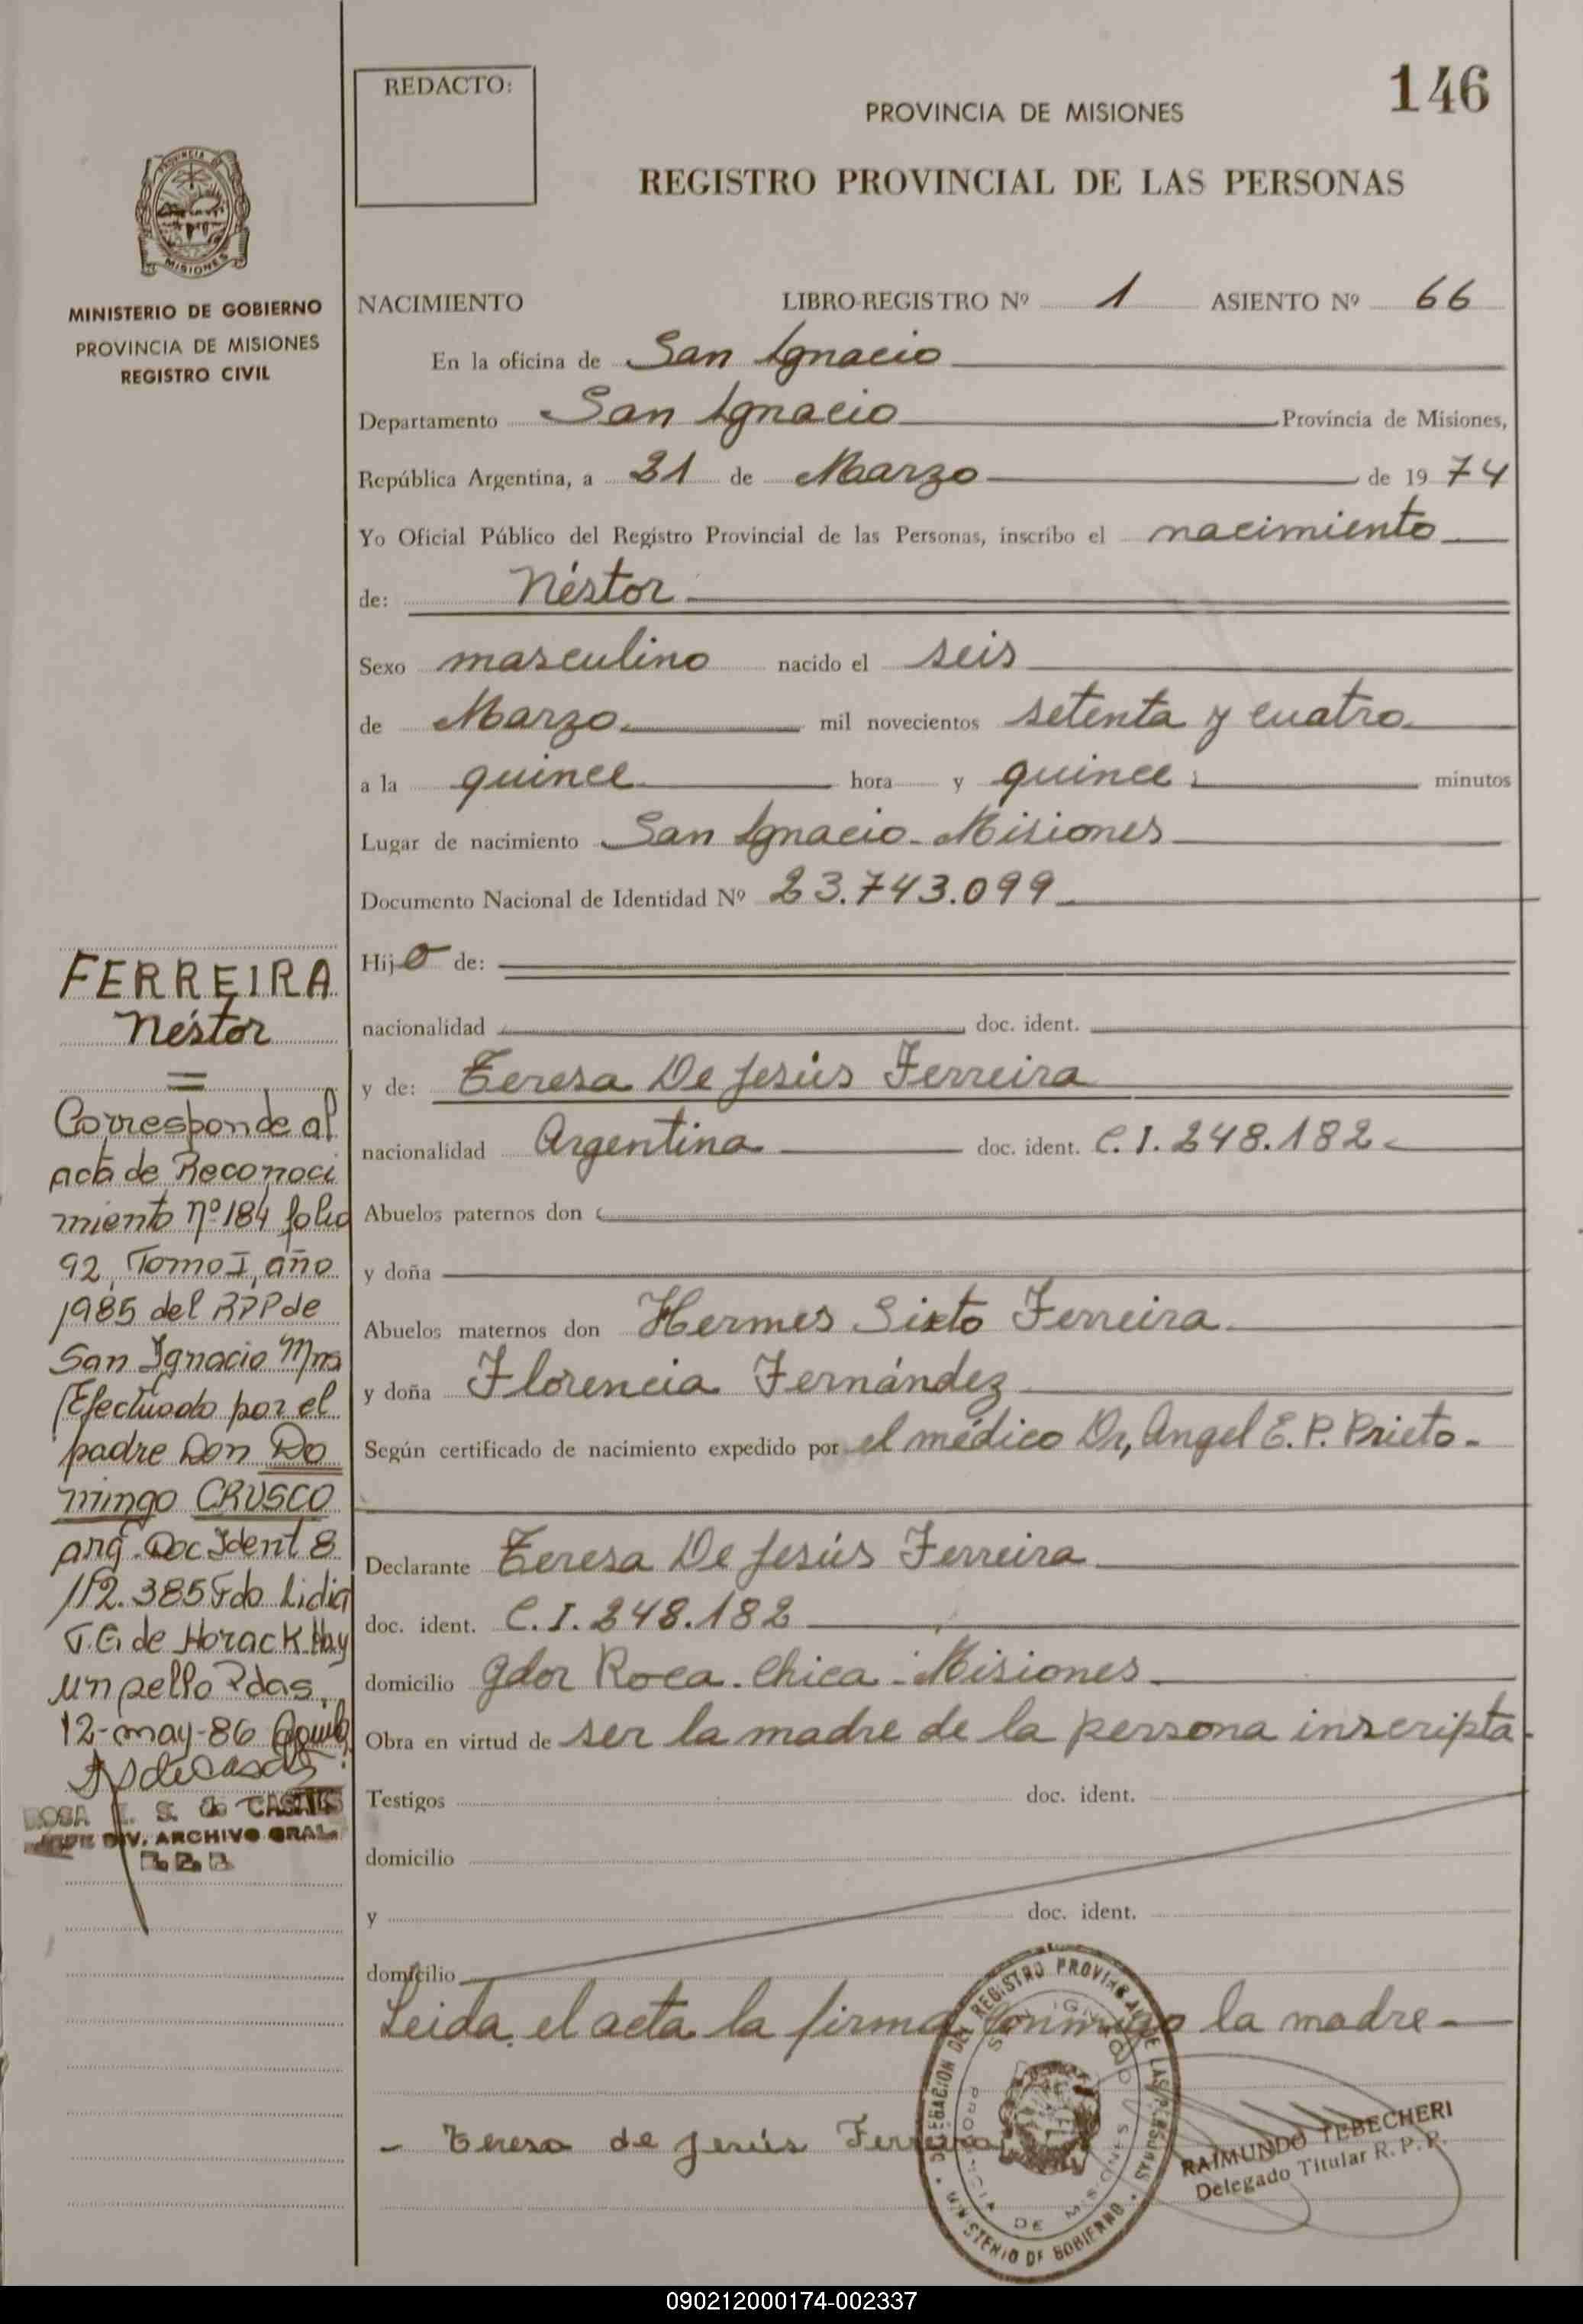 146
REDACTO:
PROVINCIA DE MISIONES
REGISTRO PROVINCIAL DE LAS PERSONAS
PROVINCIA DE
MISIONES
MINISTERIO DE GOBIERNO
PROVINCIA DE MISIONES
REGISTRO CIVIL
NACIMIENTO LIBRO-REGISTRO Nº 1 ASIENTO Nº 66
En la oficina de San Ignacio
Departamento San Ignacio Provincia de Misiones,
República Argentina, a 21 de Marzo de 1974
Yo Oficial Público del Registro Provincial de las Personas, inscribo el nacimiento
de: Néstor
Sexo masculino nacido el seis
de Marzo mil novecientos setenta y cuatro
a la quince hora y quince minutos
Lugar de nacimiento San Ignacio - Misiones
Documento Nacional de Identidad Nº 23.743.099
Hijo de:
nacionalidad doc. ident.
y de: Teresa De Jesús Ferreira
nacionalidad Argentina doc. ident. C.I. 248.182
Abuelos paternos don
y doña
Abuelos maternos don Hermes Sixto Ferreira
y doña Florencia Fernández
Según certificado de nacimiento expedido por el médico Dr, Angel E. P. Prieto.
Declarante Teresa De Jesús Ferreira
doc. ident. C.I. 248.182
domicilio Gdor Roca. Chica - Misiones
Obra en virtud de ser la madre de la persona inscripta.
Testigos doc. ident.
domicilio
y doc. ident.
domicilio
Leida el acta la firma conmigo la madre
- Teresa de Jesús Ferreira
DELEGACION DEL REGISTRO PROVINCIAL DE LAS PERSONAS
MINISTERIO DE GOBIERNO
SAN IGNACIO
PROVINCIA DE MISIONES
RAIMUNDO TEBECHERI
Delegado Titular R. P. P.
FERREIRA
Néstor
=
Corresponde al
acta de Reconoci
miento nº 184 folio
92, Tomo I, año
1985 del RPP de
San Ignacio Mns
Efectuado por el
padre Don Do
mingo CRUSCO
arg. Doc Ident 8
112.385 Fdo Lidia
T.G. de Horack Hay
un sello Pdas,
12-may-86
ROSA S. de CASALS
JEFE DIV. ARCHIVO GRAL.
090212000174-002337